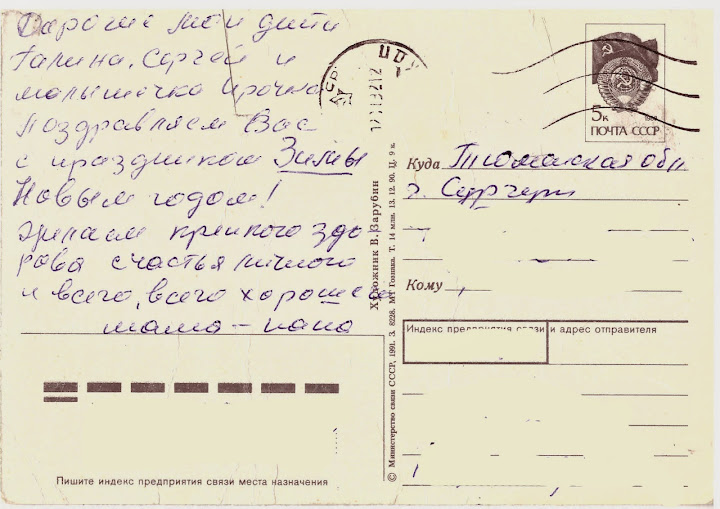 Дорогие мои дити
Галина, Сергей и
малышечка Ирочка
Поздравляем Вас
с праздником Зимы
Новым годом!
Желаем крепкого здо
ровья счастья личного
и всего, всего хорошего
мама – папа
5к
ПОЧТА СССР
Куда Тюменская обл
г. Сургут
Кому
Индекс предприятия связи и адрес отправителя
Художник В. Зарубин
© Министерство связи СССР, 1991. З. 8228. МТ Гознак. Т. 14 млн. 13. 12. 90. Ц. 9 к.
Пишите индекс предприятия связи места назначения